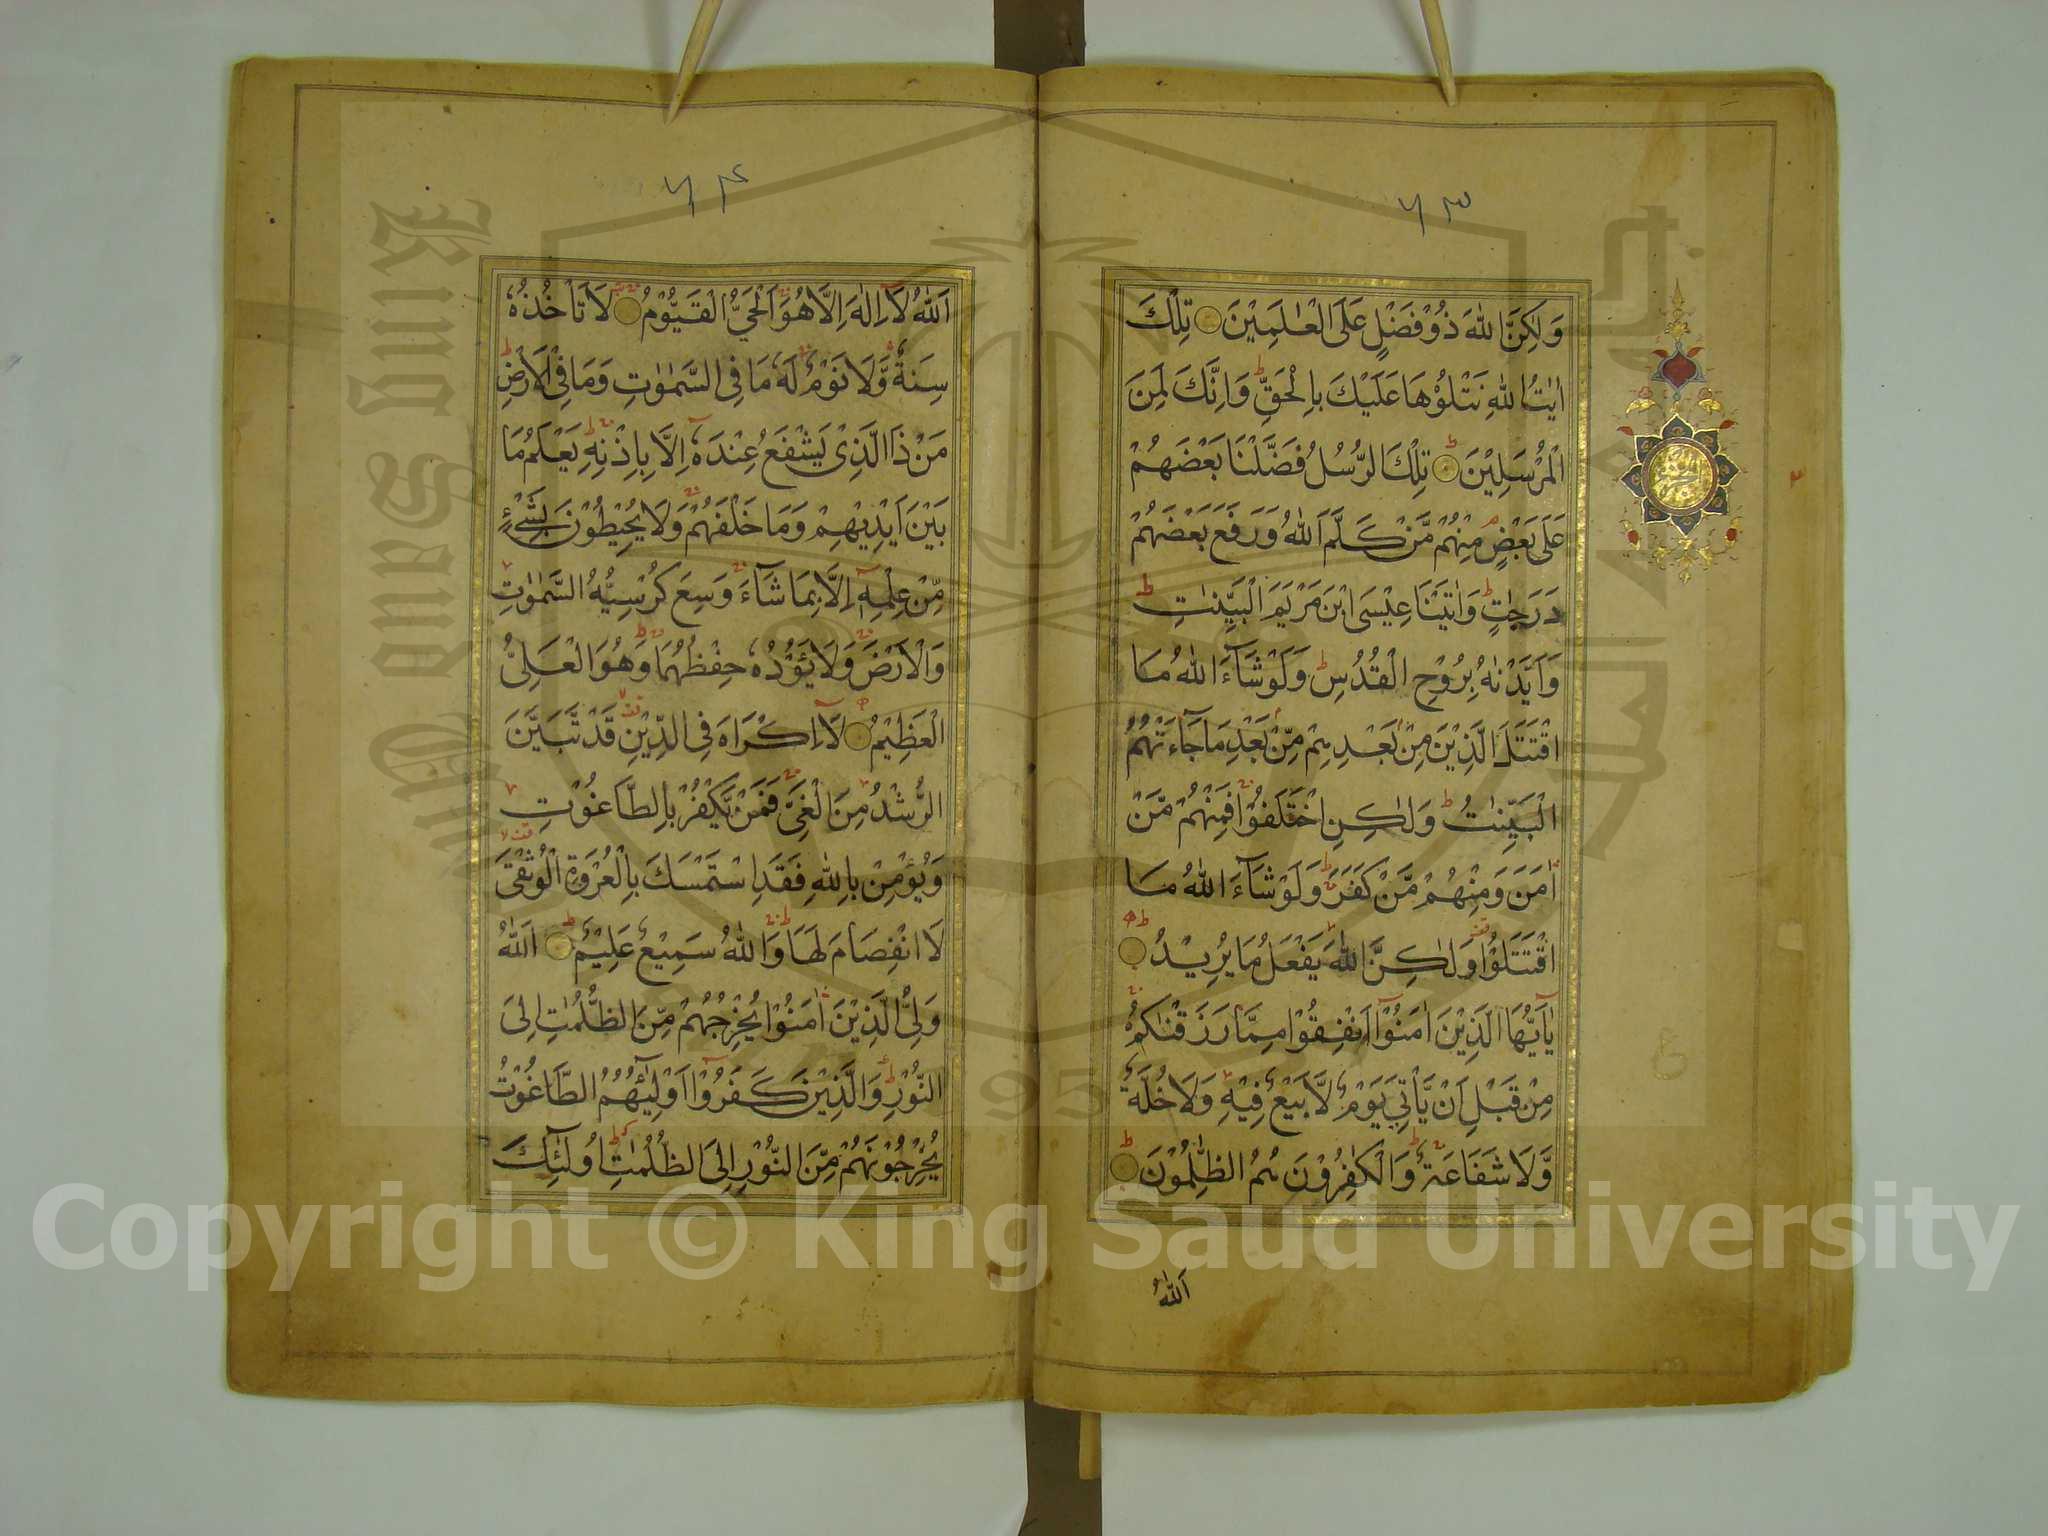 ٧٣
وَلٰكِنَّ اللهَ ذُوْ فَضْلٍ عَلَى الْعٰلَمِيْنَ تِلْكَ
اٰيٰتُ اللهِ نَتْلُوْهَا عَلَيْكَ بِالْحَقِّ وَاِنَّكَ لَمِنَ
الْمُرْسَلِيْنَ تِلْكَ الرُّسُلُ فَضَّلْنَا بَعْضَهُمْ
عَلٰى بَعْضٍ مِنْهُمْ مَّنْ كَلَّمَ اللهُ وَرَفَعَ بَعْضَهُمْ
دَرَجٰتٍ وَاٰتَيْنَا عِيْسَى ابْنَ مَرْيَمَ الْبَيِّنٰتِ
وَاَيَّدْنٰهُ بِرُوْحِ الْقُدُسِ وَلَوْ شَآءَ اللهُ مَا
اقْتَتَلَ الَّذِيْنَ مِنْ بَعْدِهِمْ مِّنْ بَعْدِ مَا جَآءَتْهُمُ
الْبَيِّنٰتُ وَلٰكِنِ اخْتَلَفُوْا فَمِنْهُمْ مَّنْ
اٰمَنَ وَمِنْهُمْ مَّنْ كَفَرَ وَلَوْ شَآءَ اللهُ مَا
اقْتَتَلُوْا وَلٰكِنَّ اللهَ يَفْعَلُ مَا يُرِيْدُ
يٰٓاَيُّهَا الَّذِيْنَ اٰمَنُوْٓا اَنْفِقُوْا مِمَّا رَزَقْنٰكُمْ
مِنْ قَبْلِ اَنْ يَّاْتِيَ يَوْمٌ لَّا بَيْعٌ فِيْهِ وَلَا خُلَّةٌ
وَّلَا شَفَاعَةٌ وَالْكٰفِرُوْنَ هُمُ الظّٰلِمُوْنَ
اَللهُ
٧٤
اَللهُ لَآ اِلٰهَ اِلَّا هُوَ اَلْحَيُّ الْقَيُّوْمُ لَا تَاْخُذُهٗ
سِنَةٌ وَّلَا نَوْمٌ لَهٗ مَا فِى السَّمٰوٰتِ وَمَا فِى الْاَرْضِ
مَنْ ذَا الَّذِىْ يَشْفَعُ عِنْدَهٗٓ اِلَّا بِاِذْنِهٖ يَعْلَمُ مَا
بَيْنَ اَيْدِيْهِمْ وَمَا خَلْفَهُمْ وَلَا يُحِيْطُوْنَ بِشَىْءٍ
مِّنْ عِلْمِهٖٓ اِلَّا بِمَا شَآءَ وَسِعَ كُرْسِيُّهُ السَّمٰوٰتِ
وَالْاَرْضَ وَلَا يَؤٗدُهٗ حِفْظُهُمَا وَهُوَ الْعَلِىُّ
الْعَظِيْمُ لَآ اِكْرَاهَ فِى الدِّيْنِ قَدْ تَّبَيَّنَ
الرُّشْدُ مِنَ الْغَىِّ فَمَنْ يَّكْفُرْ بِالطَّاغُوْتِ
وَيُؤْمِنْ بِاللهِ فَقَدِ اسْتَمْسَكَ بِالْعُرْوَةِ الْوُثْقٰى
لَا انْفِصَامَ لَهَا وَاللهُ سَمِيْعٌ عَلِيْمٌ اَللهُ
وَلِىُّ الَّذِيْنَ اٰمَنُوْا يُخْرِجُهُمْ مِّنَ الظُّلُمٰتِ اِلَى
النُّوْرِ وَالَّذِيْنَ كَفَرُوْٓا اَوْلِيٰٓـُٔهُمُ الطَّاغُوْتُ
يُخْرِجُوْنَهُمْ مِّنَ النُّوْرِ اِلَى الظُّلُمٰتِ اُولٰٓئِكَ
King Saud University
1957
Copyright © King Saud University